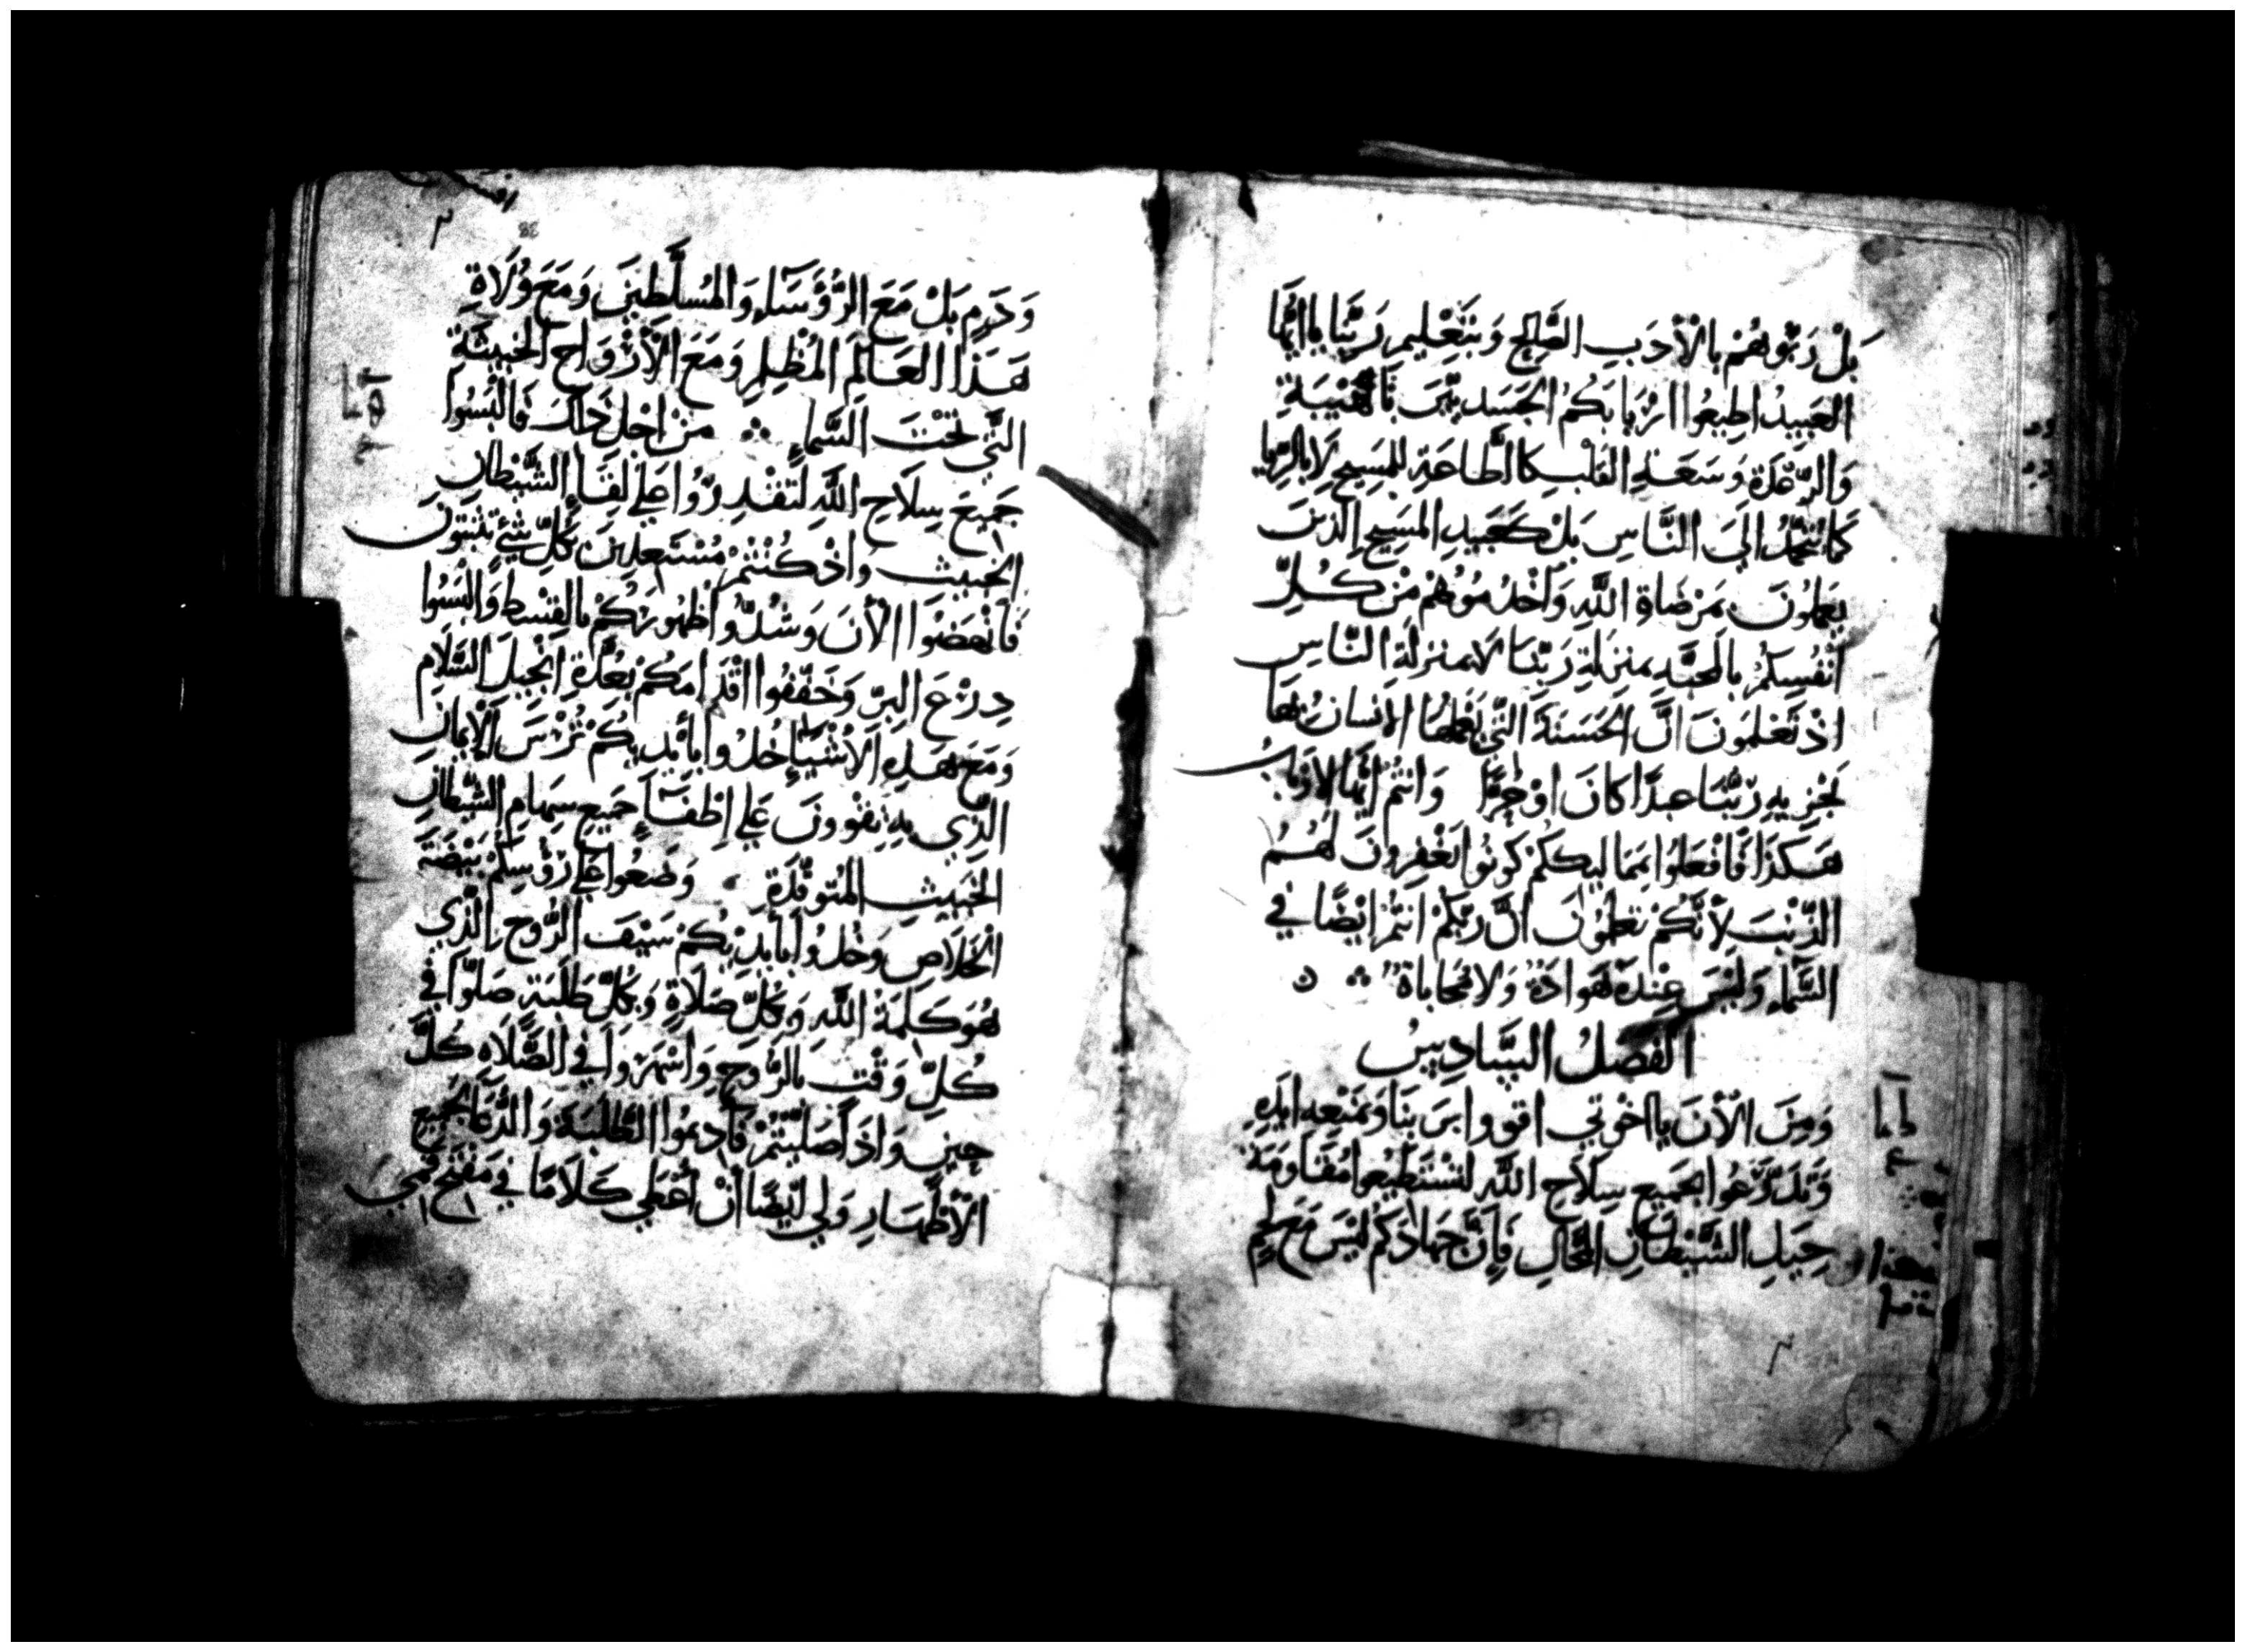 بَلْ رَبُّوهُمْ بِالْأَدَبِ الصَّالِحِ وَبِتَعْلِيمِ رَبِّنَا يَا ايُّهَا
العَبِيدُ اطِيعُوا ارْبَابَكُمُ الجَسَدِيِّينَ بِالْهَيْبَةِ
وَالرِّعْدَةِ وَسَعَةِ القَلْبِ كَالطَّاعَةِ لِلمَسِيحِ لَا بِالرِّيَا
الَى النَّاسِ بَلْ كَعَبِيدِ المَسِيحِ الَّذِينَ
يَعمَلُونَ بِمَرْضَاةِ اللَّهِ وَاخْدُمُوهُمْ مِنْ كُلِّ
أَنْفُسِكُمْ بِالمَحَبَّةِ بِمَنزِلَةِ رَبِّنَا لَا بِمَنزِلَةِ النَّاسِ
اذْ تَعْلَمُونَ انَّ الحَسَنَةَ الَّتِي يَعْمَلُهَا الانسَانُ بِهَا
يَجْزِيهِ رَبُّنَا عَبدًا كَانَ اوْ حُرًّا وَانتُمْ ايُّهَا الارْبَابُ
هَكَذَا فَافْعَلُوا بِمَمَالِيكِكُمْ كُونُوا تَغْفِرُونَ لَهُمُ
الذَّنْبَ لِأَنَّكُمْ تَعلَمُونَ انَّ رَبَّكُمْ انتُمْ ايْضًا فِي
السَّمَاءِ وَلَيْسَ عِنْدَهُ هَوَادَةٌ وَلَا مُحَابَاةٌ
الفَصْلُ السَّادِسُ
وَمِنَ الْأنَ يَا اخْوَتِي اقْوَوا بِرَبِّنَا وَبِمَنْعَةِ ايدِهِ
وَتَدَرَّعُوا بِجَمِيعِ سِلَاحِ اللَّهِ لِتَسْتَطِيعُوا مُقَاوَمَةَ
حِيَلِ الشَّيْطَانِ المَحَّالِ فَإِنَّ جِهَادَكُمْ لَيْسَ مَعَ لَحْمٍ
وَدَمٍ بَلْ مَعَ الرُّؤَسَاءِ وَالمُسَلَّطِينَ وَمَعَ وُلَاةِ
هَذَا العَالَمِ المُظْلِمِ وَمَعَ الْأَرْوَاحِ الخَبِيثَةِ
الَّتِي تَحْتَ السَّمَاءِ مِنْ اجْلِ ذَلِكَ فَالْبَسُوا
جَمِيعَ سِلَاحِ اللَّهِ لِتَقْدِرُوا عَلَى لِقَاءِ الشَّيْطَانِ
الخَبِيثِ وَاذْ كُنْتُمْ مُسْتَعِدِّينَ بِكُلِّ شَيْءٍ تَثْبُتُونَ
فَانْهَضُوا الْأنَ وَشُدُّوا ظُهُورَكُمْ بِالقِسْطِ وَالْبَسُوا
دِرْعَ البِرِّ وَخَفِّفُوا اقْدَامَكُمْ بِعُدَّةِ انْجِيلِ السَّلَامِ
وَمَعَ هَذِهِ الْأَشْيَاءِ خُذُوا بِأَيْدِيكُمْ تُرْسَ الْإِيمَانِ
الَّذِي بِهِ تَقْوَوْنَ عَلَى اطْفَاءِ جَمِيعِ سِهَامِ الشَّيْطَانِ
الخَبِيثِ المُتَوَقِّدَةِ وَضَعُوا عَلَى رُؤُسِكُمْ بَيْضَةَ
الخَلَاصِ وَخُذُوا بِأَيْدِيكُمْ سَيْفَ الرُّوحِ الَّذِي
هُوَ كَلِمَةُ اللَّهِ وَبِكُلِّ صَلَاةٍ وَبِكُلِّ طَلِبَةٍ صَلُّوا فِي
كُلِّ وَقْتٍ بِالرُّوحِ وَاسْهَرُوا فِي الصَّلَاهِ كُلَّ
حِينٍ وَاذَا صَلَّيْتُمْ فَأَدِيمُوا الطَّلِبَةَ وَالدُّعَا لِجَمِيعِ
الْأَطْهَارِ وَلِي ايْضًا أَنْ أُعْطَى كَلَامًا فِي مَفْتَحِ فَمِي